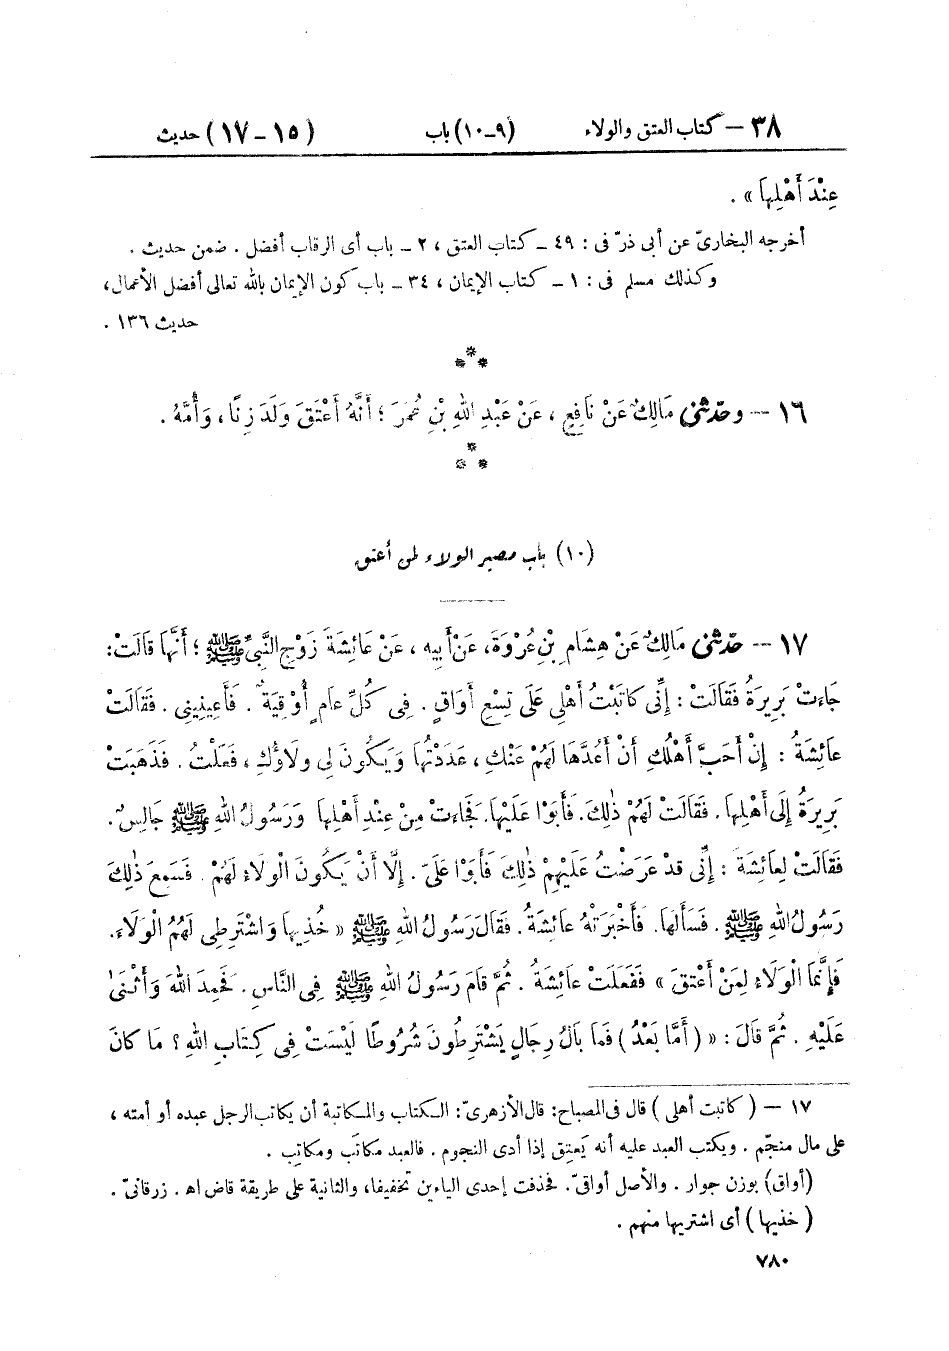 ٣٨ – كتاب العتق والولاء (٩-١٠) باب (١٥-١٧) حديث
عِنْدَ أَهْلِهَا» .
أخرجه البخارىّ عن أبى ذرّ فى : ٤٩ ـ كتاب العتق ، ٢ ـ باب أى الرقاب أفضل . ضمن حديث .
وكذلك مسلم فى : ١ ـ كتاب الإيمان ، ٣٤ ـ باب كون الإيمان بالله تعالى أفضل الأعمال،
حديث ١٣٦ .
***
١٦ – وحدّثنى مَالِكٌ عَنْ نَافِعٍ ، عَنْ عَبْدِ اللهِ بْنِ عُمَرَ ؛ أَنَّهُ أَعْتَقَ وَلَدَ زِنًا ، وَأُمَّهُ .
***
(١٠) باب مصير الولاء لمن أعتق
١٧ – حدّثنى مَالِكٌ عَنْ هِشَامِ بْنِ عُرْوَةَ، عَنْ أَبِيهِ ، عَنْ عَائِشَةَ زَوْجِ النَّبِيِّ ﷺ ؛ أَنَّهَا قَالَتْ:
جَاءَتْ بَرِيرَةُ فَقَالَتْ : إِنِّى كَاتَبْتُ أَهْلِى عَلَى تِسْعِ أَوَاقٍ . فِى كُلِّ عَامٍ أُوقِيَةٌ . فَأَعِينِينِى . فَقَالَتْ
عَائِشَةُ : إِنْ أَحَبَّ أَهْلُكِ أَنْ أَعُدَّهَا لَهُمْ عَنْكِ ، عَدَدْتُهَا وَيَكُونَ لِى وَلَاؤُكِ ، فَعَلْتُ . فَذَهَبَتْ
بَرِيرَةُ إِلَى أَهْلِهَا . فَقَالَتْ لَهُمْ ذٰلِكَ. فَأَبَوْا عَلَيْهَا. فَجَاءَتْ مِنْ عِنْدِ أَهْلِهَا وَرَسُولُ اللهِ ﷺ جَالِسٌ .
فَقَالَتْ لِعَائِشَةَ : إِنِّى قَدْ عَرَضْتُ عَلَيْهِمْ ذٰلِكَ فَأَبَوْا عَلَىَّ . إِلَّا أَنْ يَكُونَ الْوَلَاءُ لَهُمْ . فَسَمِعَ ذٰلِكَ
رَسُولُ اللهِ ﷺ . فَسَأَلَهَا. فَأَخْبَرَتْهُ عَائِشَةُ . فَقَالَ رَسُولُ اللهِ ﷺ « خُذِيهَا وَاشْتَرِطِى لَهُمُ الْوَلَاءَ.
فَإِنَّمَا الْوَلَاءُ لِمَنْ أَعْتَقَ » فَفَعَلَتْ عَائِشَةُ . ثُمَّ قَامَ رَسُولُ اللهِ ﷺ فِى النَّاسِ . فَحَمِدَ اللهَ وَأَثْنَىٰ
عَلَيْهِ . ثُمَّ قَالَ : « ( أَمَّا بَعْدُ ) فَمَا بَالُ رِجَالٍ يَشْتَرِطُونَ شُرُوطًا لَيْسَتْ فِى كِتَابِ اللهِ ؟ مَا كَانَ
١٧ – ( كاتبت أهلى ) قال فى المصباح: قال الأزهرىّ: الكتاب والمكاتبة أن يكاتب الرجل عبده أو أمته ،
على مال منجّم . ويكتب العبد عليه أنه يَعتِق إذا أدى النجوم . فالعبد مكاتَب ومكاتِب .
(أواق) بوزن جوار . والأصل أواقىّ. فحذفت إحدى الياءين تخفيفا، والثانية على طريقة قاض اه‍ . زرقانىّ .
( خذيها ) أى اشتريها منهم .
٧٨٠